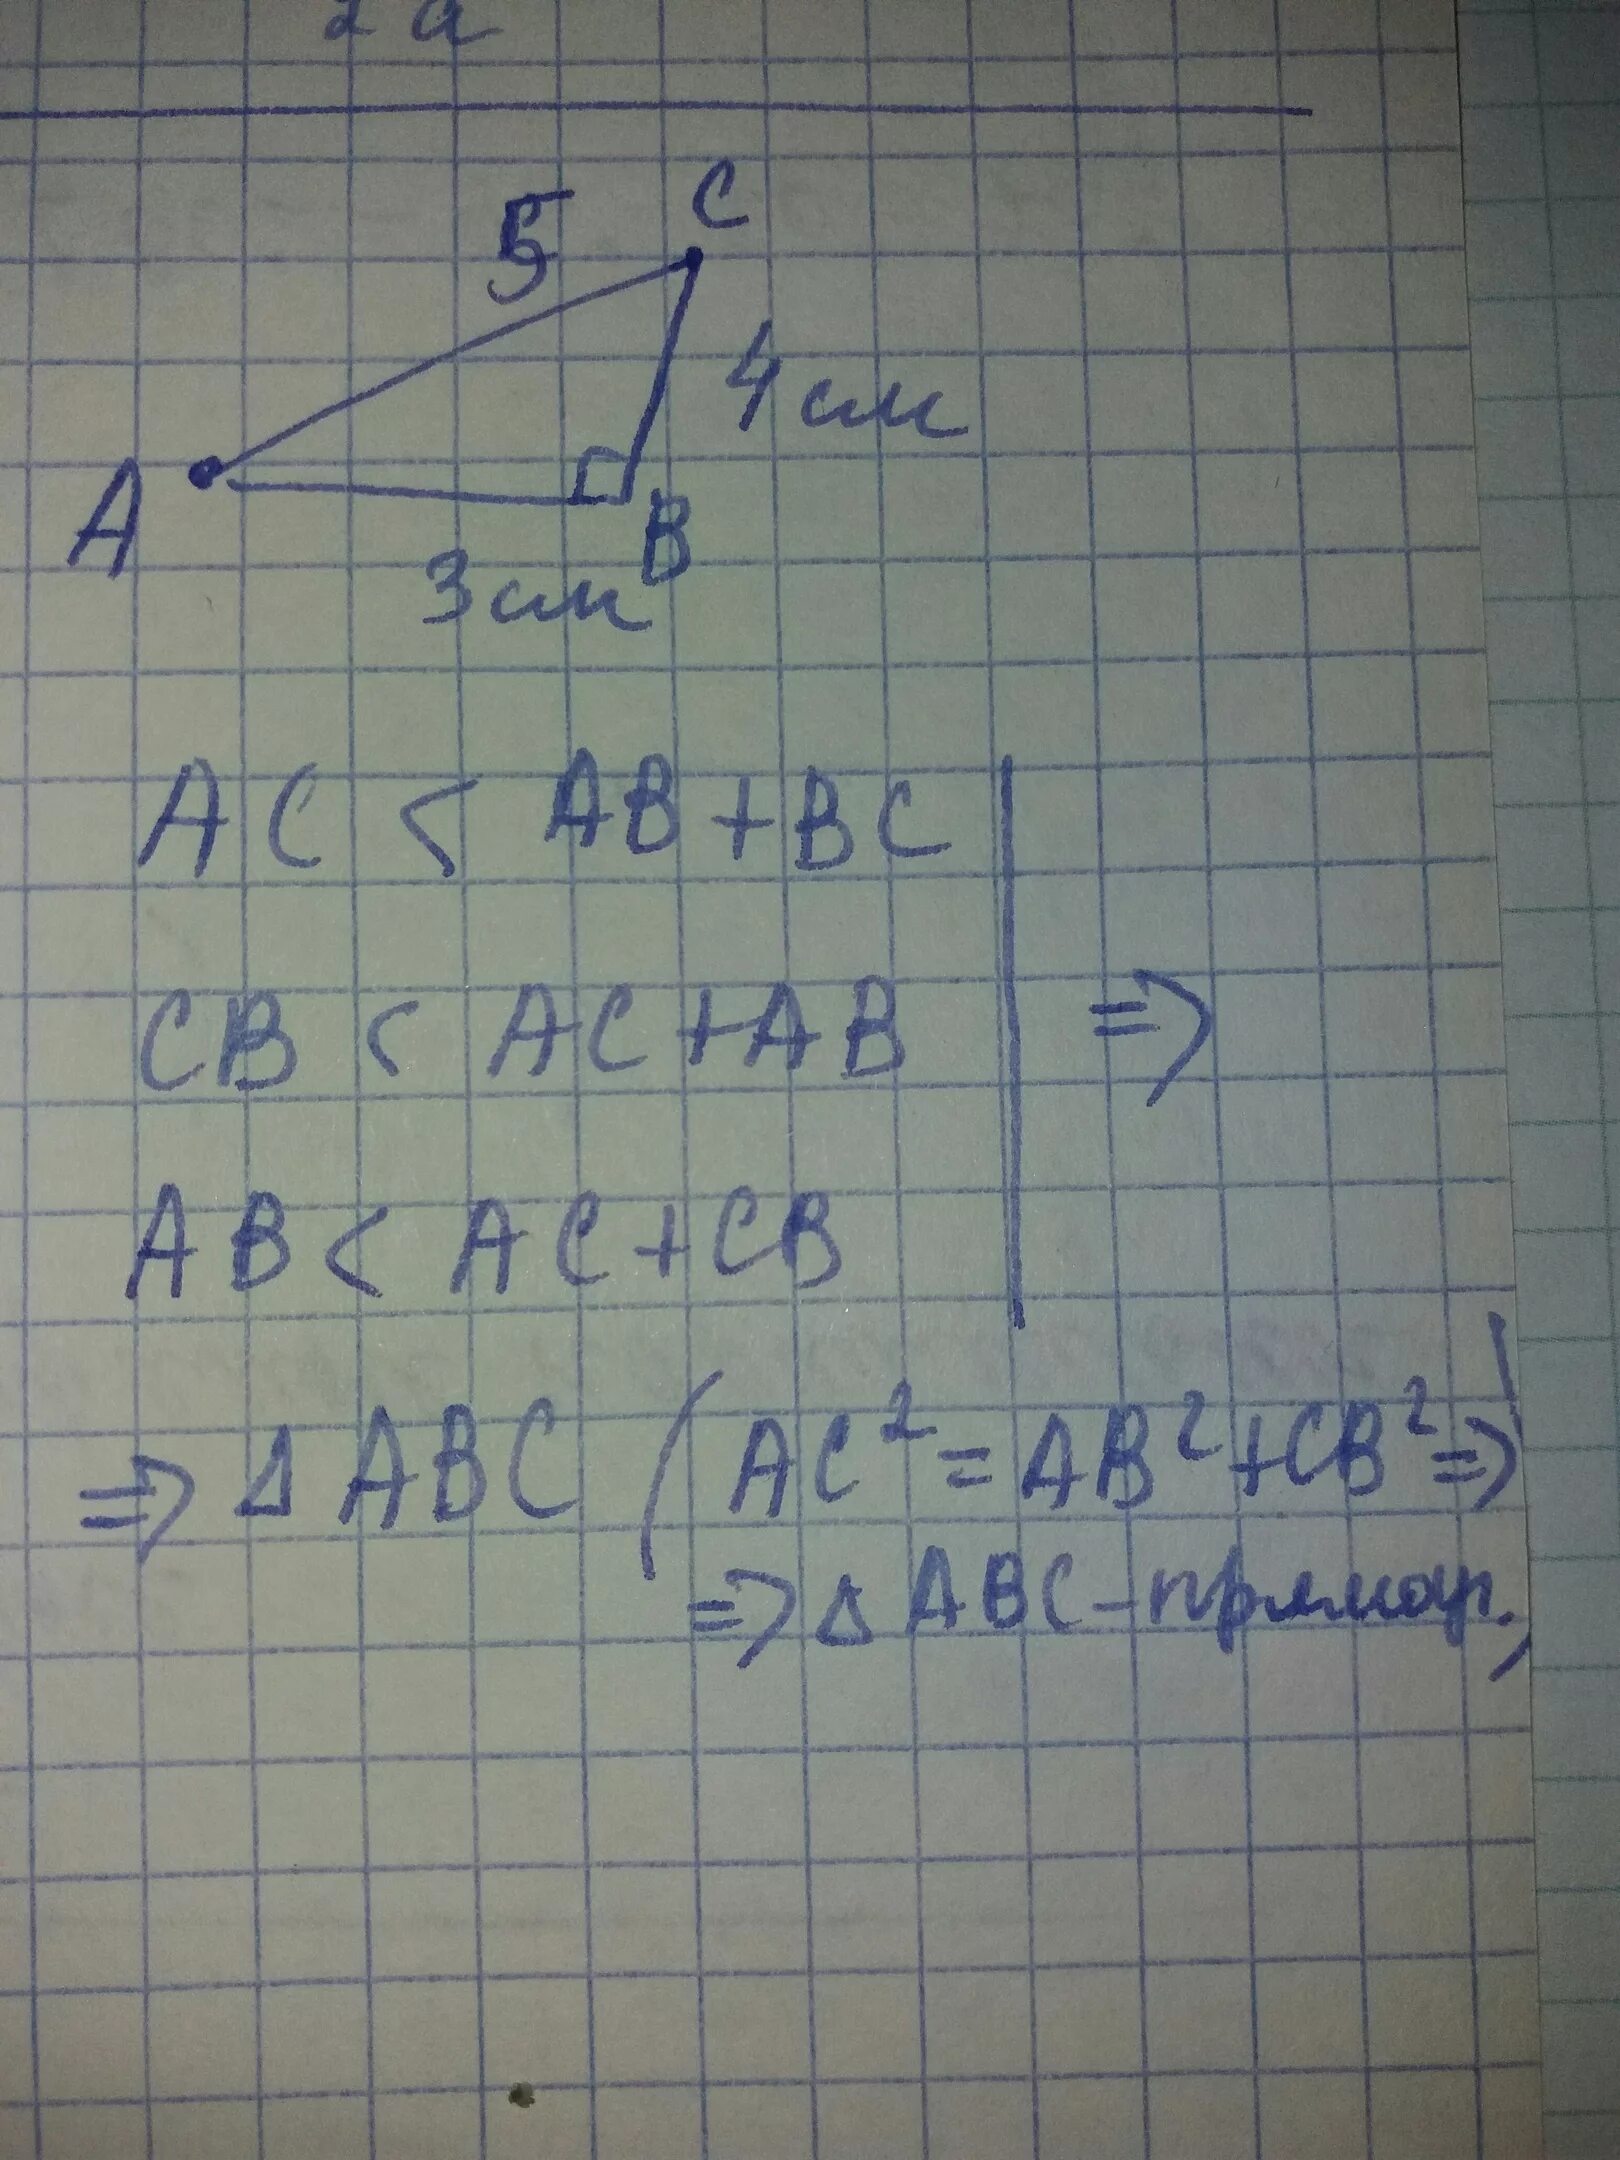 2a
C
5
4 см
A
B
3 см
AC < AB + BC
CB < AC + AB =>
AB < AC + CB
=> Δ ABC (AC² = AB² + CB² =>
=> Δ ABC - прямоуг.)